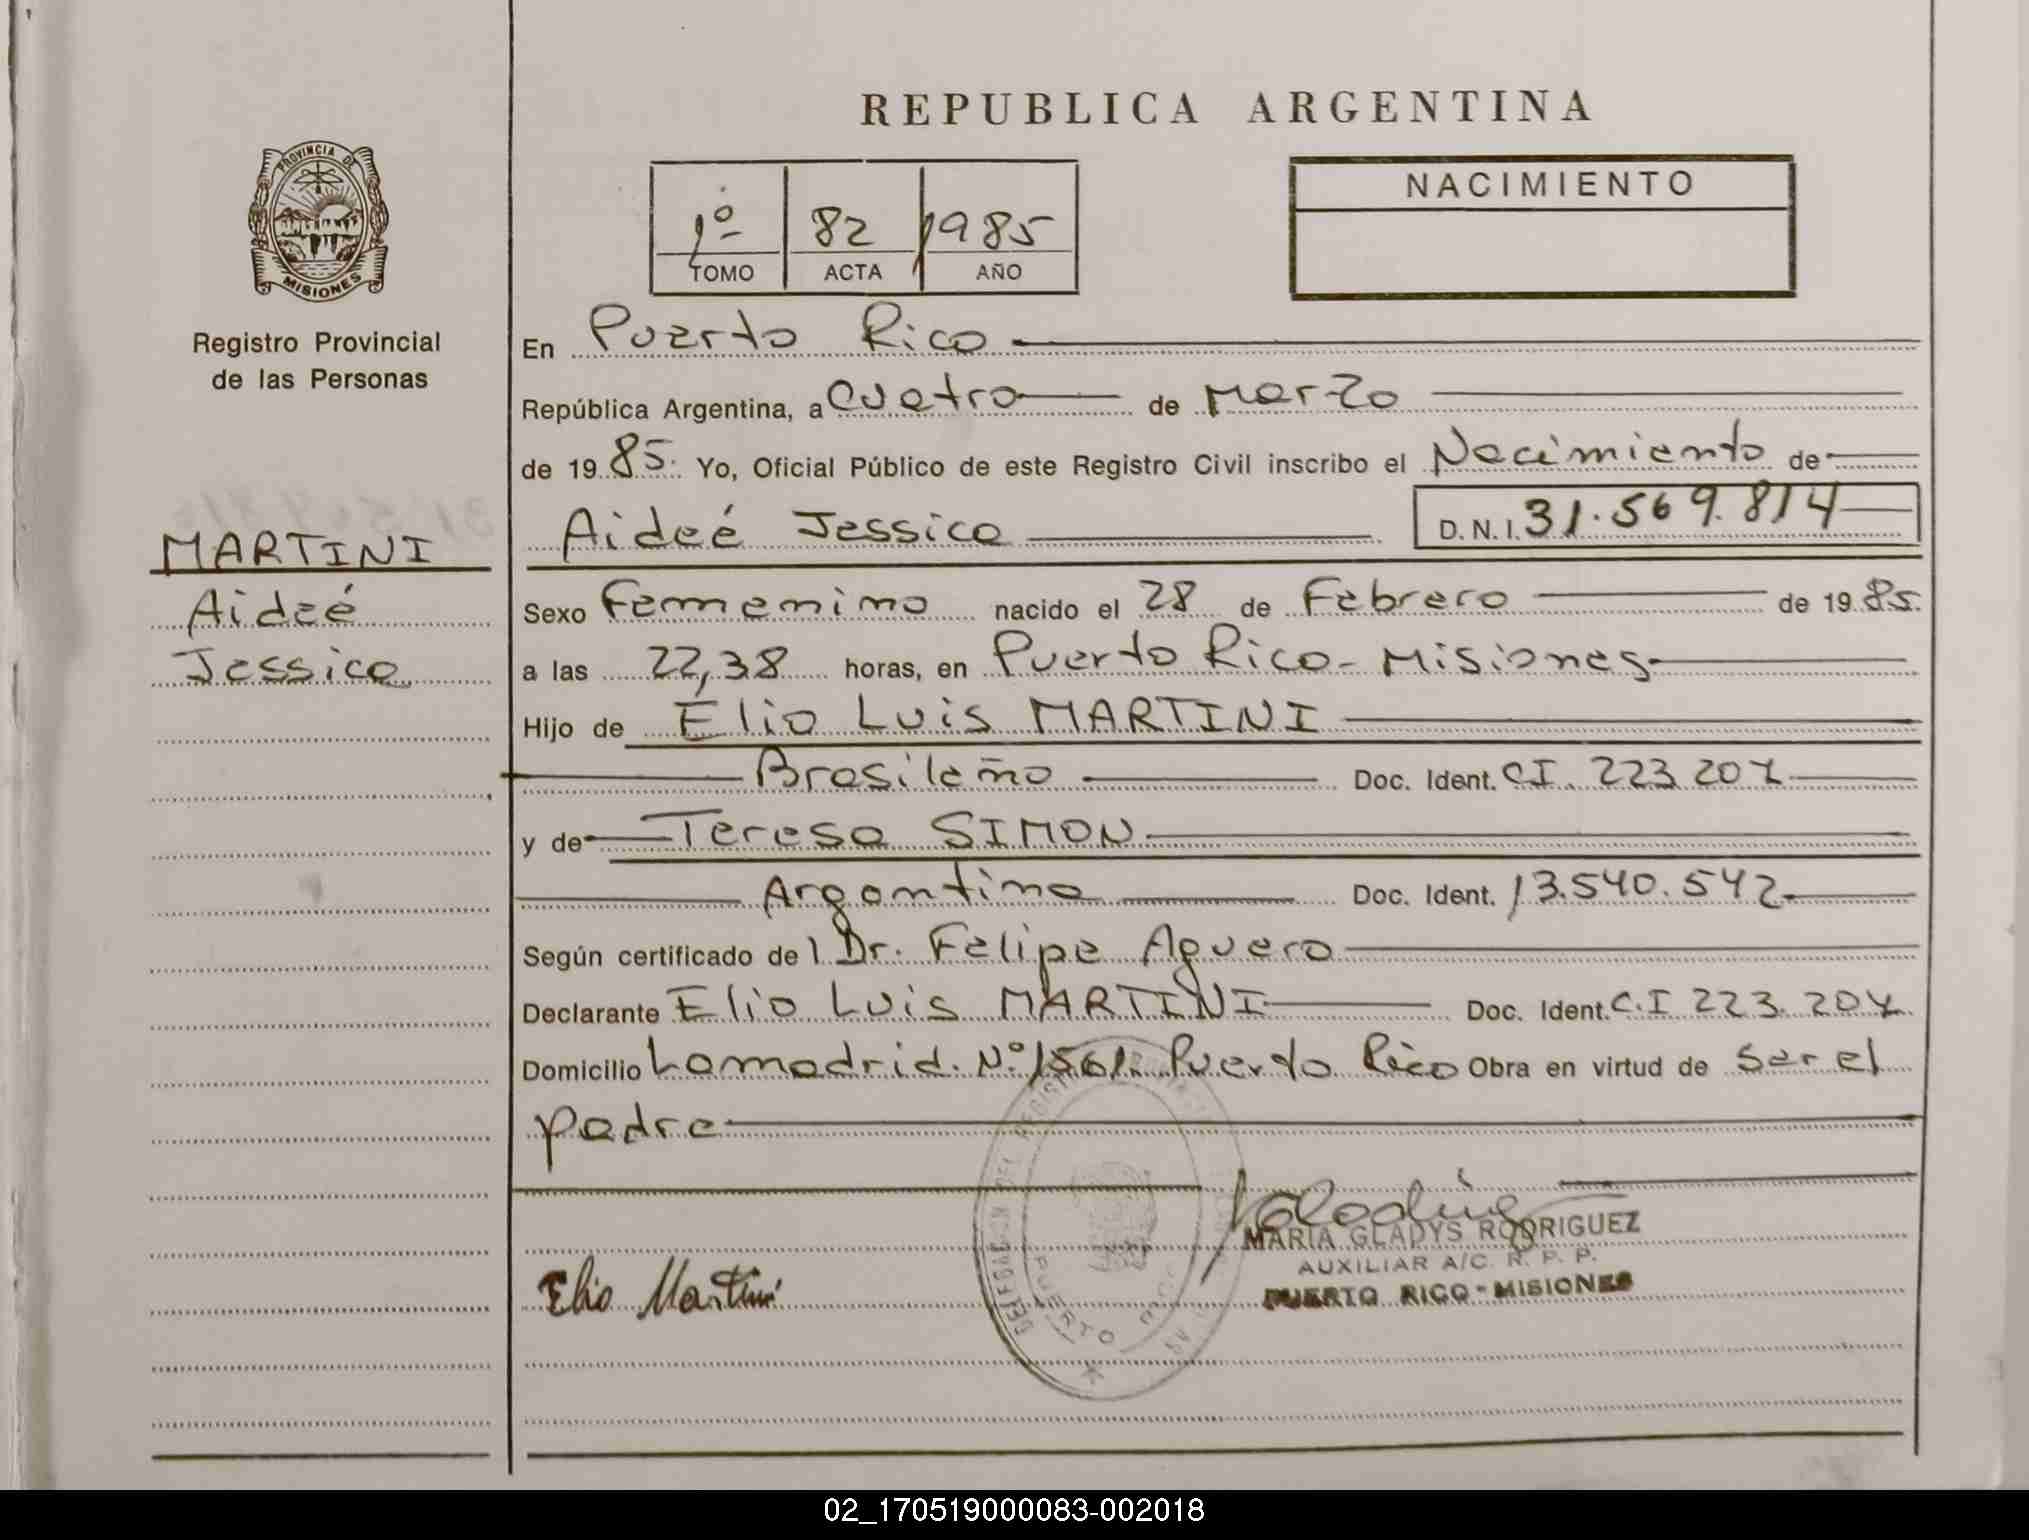 REPUBLICA ARGENTINA
PROVINCIA DE
MISIONES
Registro Provincial
de las Personas
1º 82 1985
TOMO ACTA AÑO
NACIMIENTO
En Puerto Rico
República Argentina, a Cuatro de Marzo
de 19 85. Yo, Oficial Público de este Registro Civil inscribo el Nacimiento de
Aideé Jessica D. N. I. 31.569.814
MARTINI
Aideé
Jessica
Sexo Femenino nacido el 28 de Febrero de 19 85.
a las 22,38 horas, en Puerto Rico - Misiones
Hijo de Elio Luis MARTINI
Brasileño Doc. Ident. CI. 223.207
y de Teresa SIMON
Argentina Doc. Ident. 13.540.542
Según certificado de l Dr. Felipe Aguero
Declarante Elio Luis MARTINI Doc. Ident. C.I 223.207
Domicilio Lamadrid. Nº 1561. Puerto Rico Obra en virtud de Ser el
padre
MARIA GLADYS RODRIGUEZ
AUXILIAR A/C. R. P. P.
PUERTO RICO - MISIONES
Elio Martini
PUERTO RICO
02_170519000083-002018